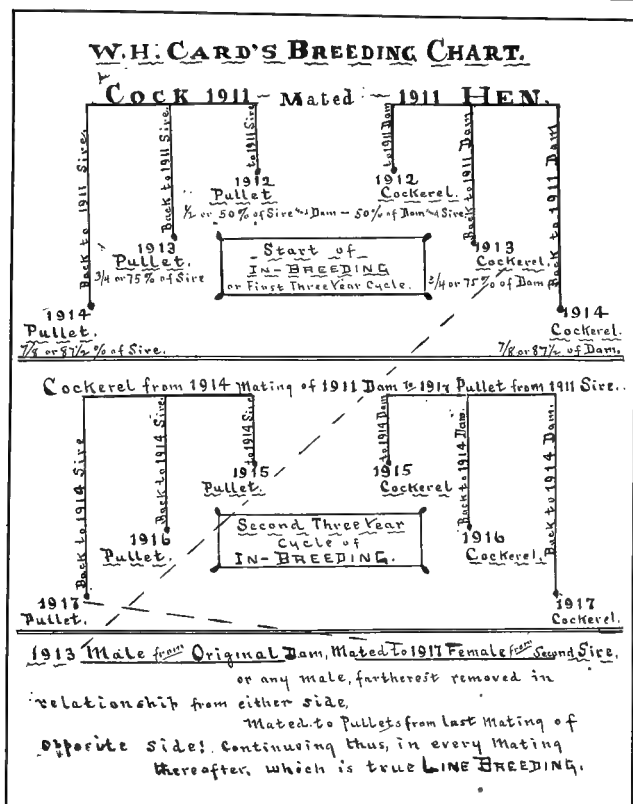 W.H. CARD'S BREEDING CHART.
COCK 1911 ~ Mated ~ 1911 HEN.
Back to 1911 Sire.
Back to 1911 Sire.
to 1911 Sire.
to 1911 Dam
Back to 1911 Dam
Back to 1911 Dam
1912
Pullet
1912
Cockerel.
1/2 or 50% of Sire and Dam - 50% of Dam and Sire.
1913
Pullet.
3/4 or 75% of Sire
Start of
IN-BREEDING
or First Three Year Cycle.
1913
Cockerel.
3/4 or 75% of Dam
1914
Pullet.
7/8 or 87 1/2 % of Sire.
1914
Cockerel.
7/8 or 87 1/2 of Dam.
Cockerel from 1914 Mating of 1911 Dam To Pullet from 1911 Sire..
Back to 1914 Sire
Back to 1914 Sire.
to 1914 Sire.
to 1914 Dam
Back to 1914 Dam.
Back to 1914 Dam.
1915
Pullet.
1915
Cockerel
1916
Pullet.
Second Three Year
Cycle of
IN-BREEDING.
1916
Cockerel.
1917
Pullet.
1917
Cockerel.
1913 Male from Original Dam, Mated To 1917 Female from Second Sire,
or any male, fartherest removed in
relationship from either side,
Mated to Pullets from last Mating of
opposite side! Continuing thus, in every Mating
thereafter, which is true LINE BREEDING.